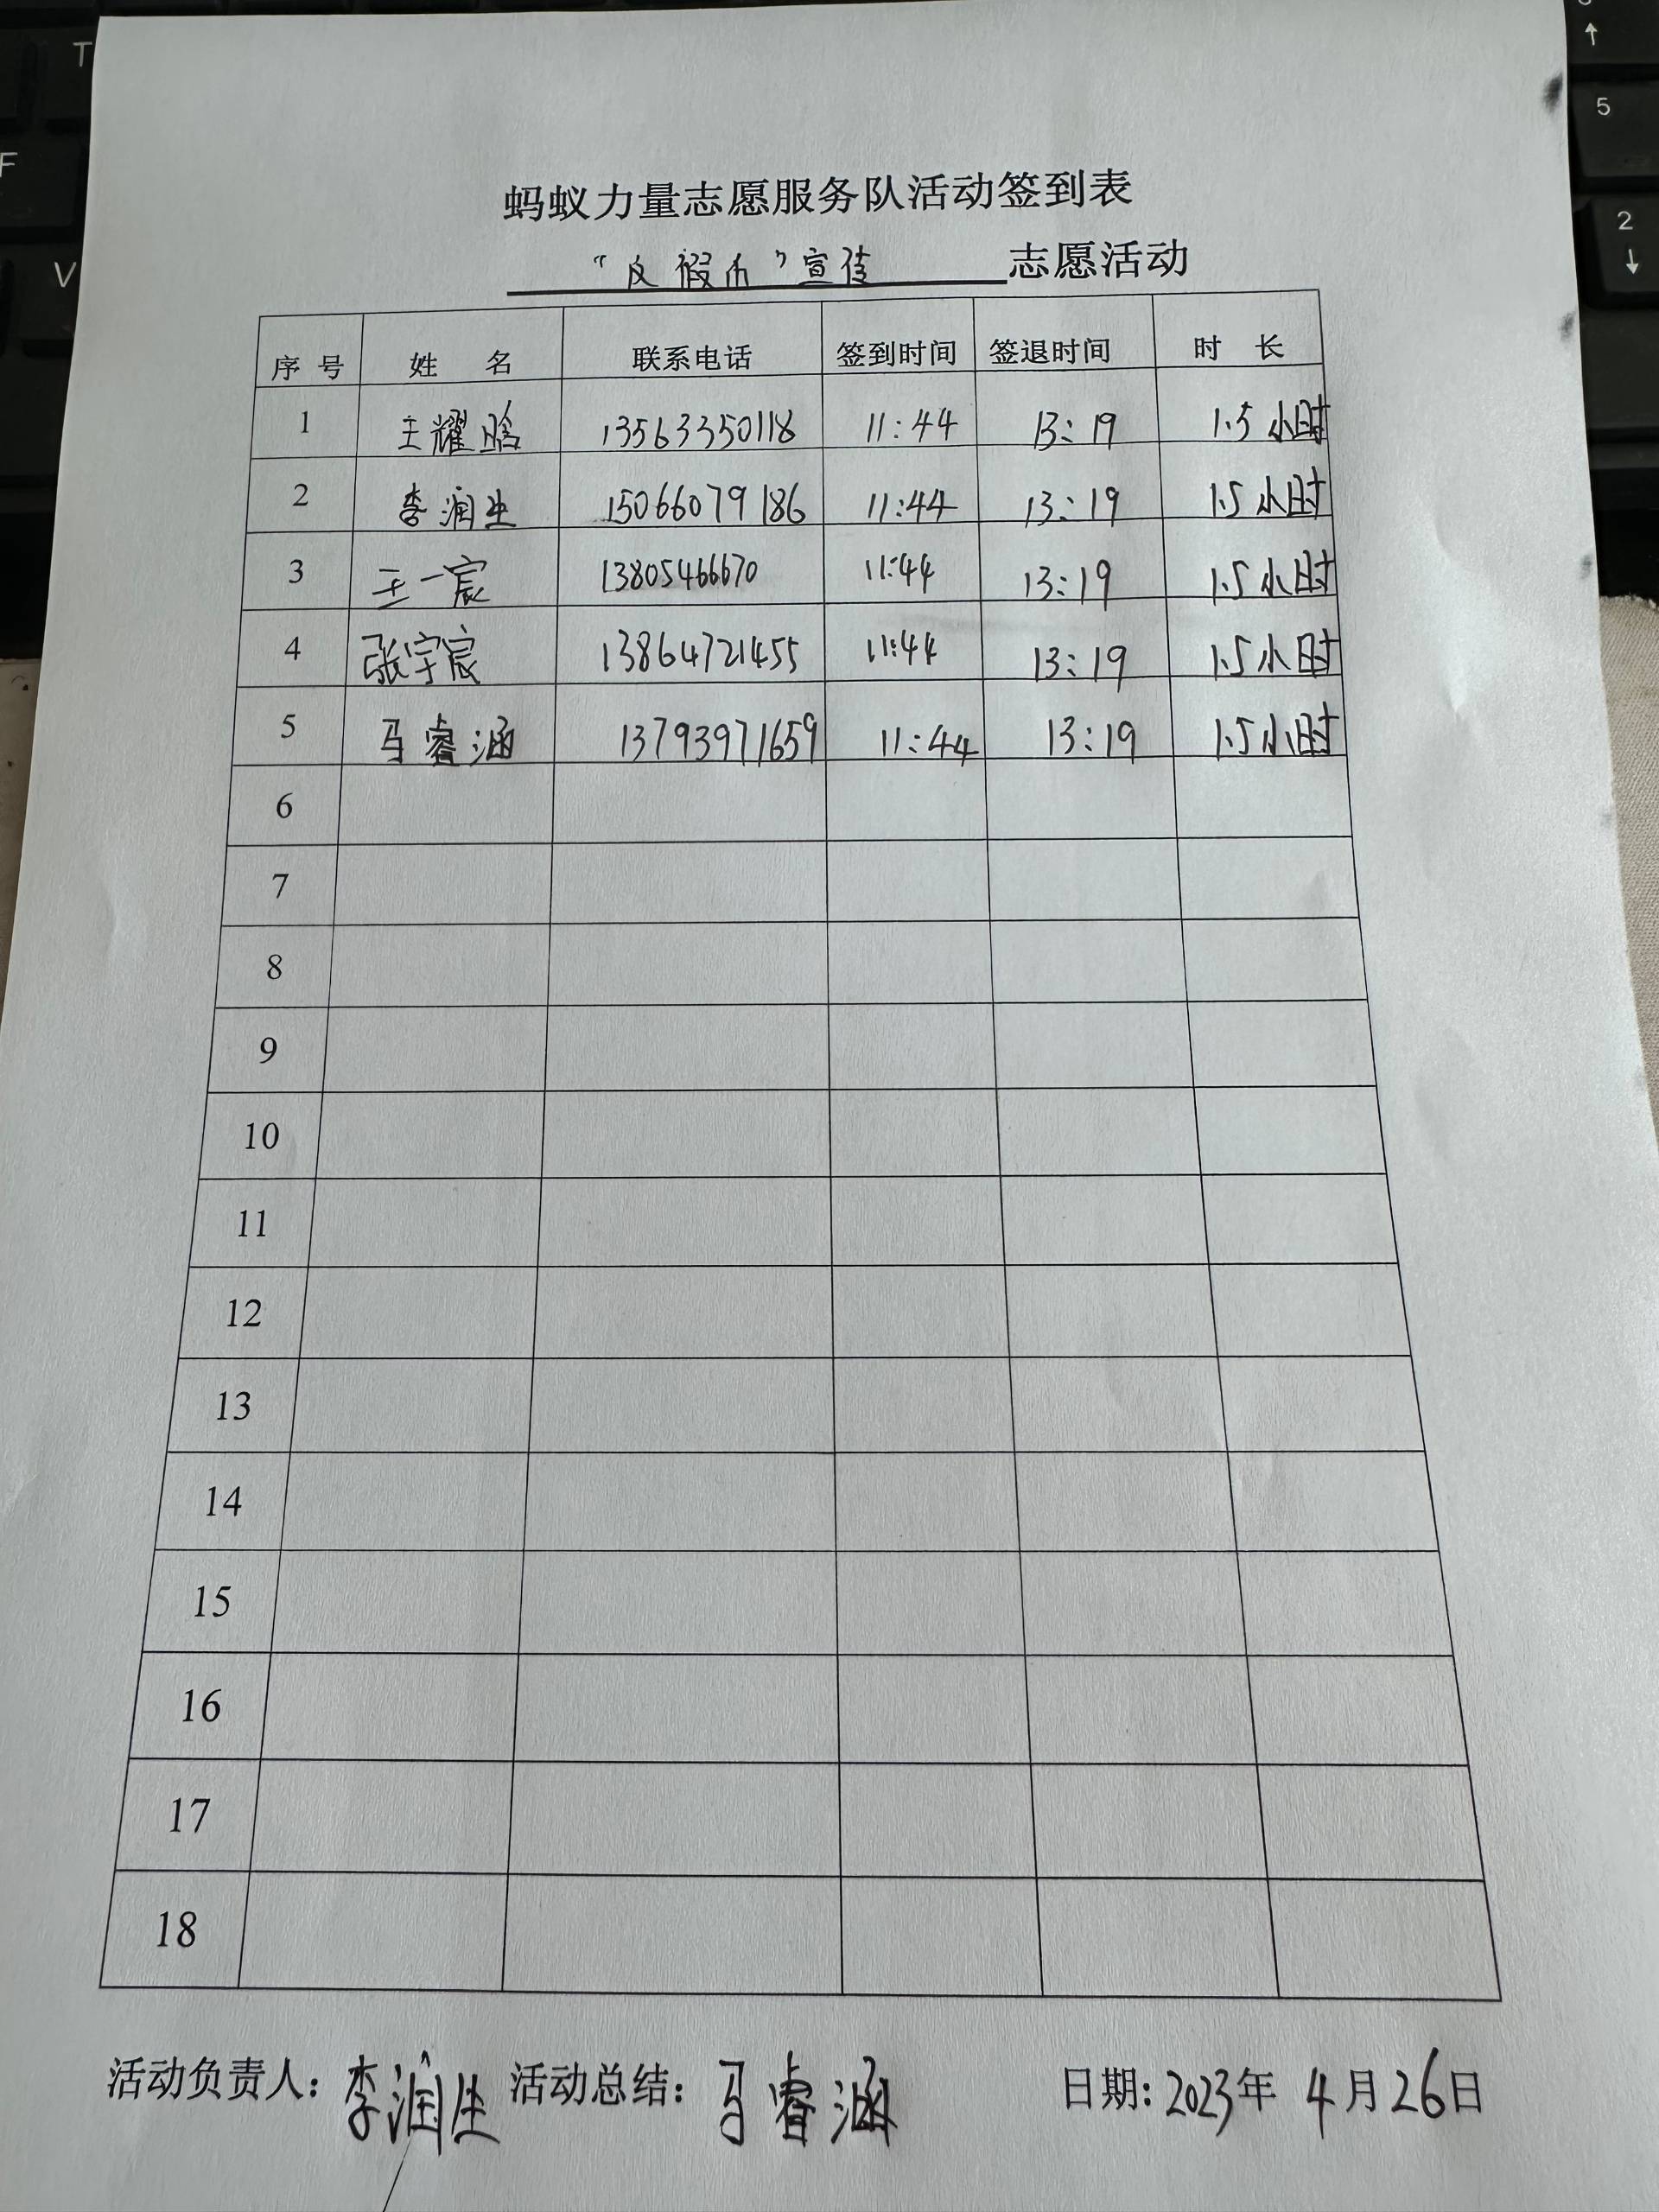 蚂蚁力量志愿服务队活动签到表
“反假币”宣传 志愿活动
序号 姓名 联系电话 签到时间 签退时间 时长
1 王耀晗 13563350118 11:44 13:19 1.5小时
2 李润生 15066079186 11:44 13:19 1.5小时
3 王一宸 13805466670 11:44 13:19 1.5小时
4 张宇宸 13864721455 11:44 13:19 1.5小时
5 马睿涵 13793971659 11:44 13:19 1.5小时
6
7
8
9
10
11
12
13
14
15
16
17
18
活动负责人：李润生 活动总结：马睿涵 日期：2023年4月26日
T
F
V
5
2